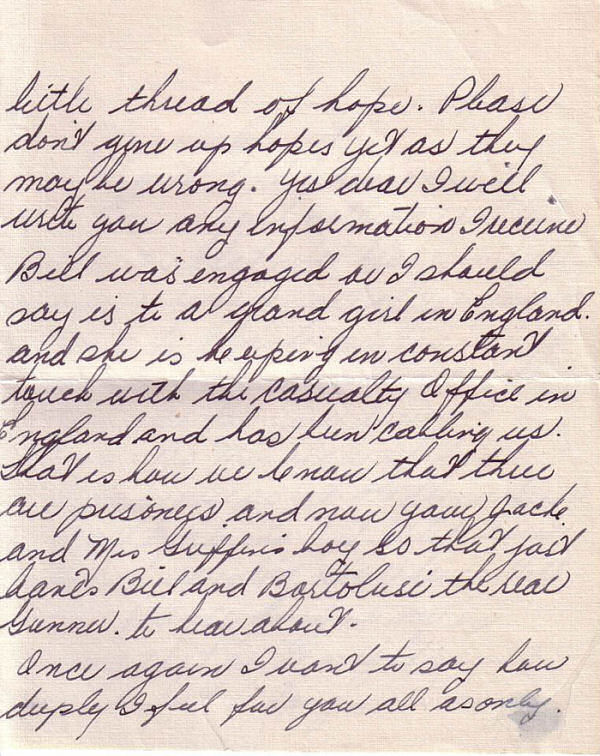 little thread of hope. Please
don't give up hopes yet as they
maybe wrong. Yes dear I will
write you any information I receive
Bill was engaged or I should
say is to a grand girl in England.
and she is keeping in constant
touch with the Casualty Office in
England and has been cabling us.
that is how we know that three
are prisoners and now your Jack
and Mrs Griffin's boy so that just
leaves Bill and Bortolusi the rear
Gunner. to hear about.
Once again I want to say how
deeply I feel for you all as only.